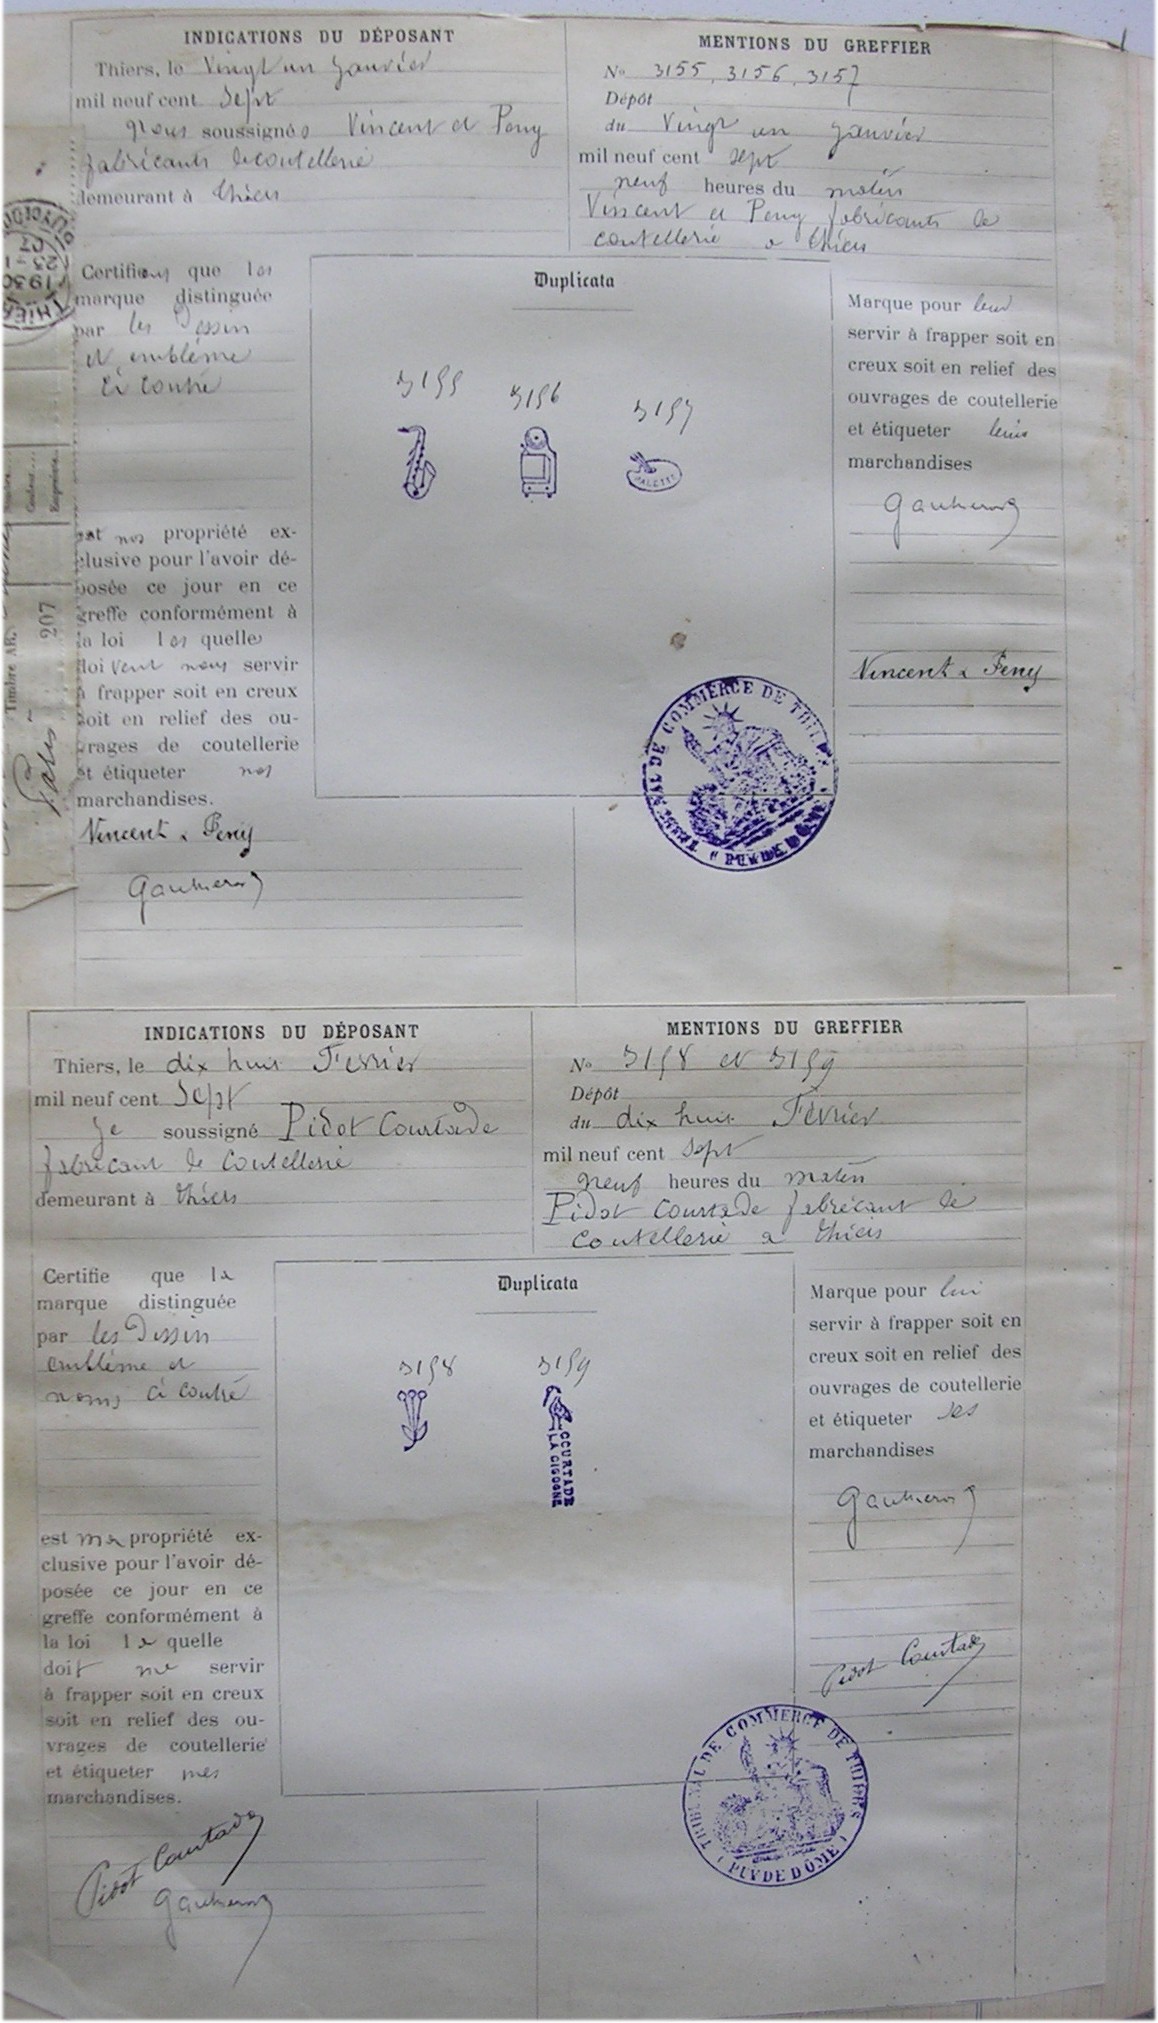 INDICATIONS DU DÉPOSANT
Thiers, le Vingt un Janvier
mil neuf cent Sept
Nous soussignés Vincent et Peny
fabricants de coutellerie
demeurant à Thiers
MENTIONS DU GREFFIER
No 3155, 3156, 3157
Dépôt
du Vingt un Janvier
mil neuf cent sept
neuf heures du matin
Vincent et Peny fabricants de
coutellerie a Thiers
Certifions que les
marque distinguée
par les Dessin
et emblème
ci contre
est nos propriété ex-
clusive pour l'avoir dé-
posée ce jour en ce
greffe conformément à
la loi les quelles
doivent nous servir
à frapper soit en creux
soit en relief des ou-
vrages de coutellerie
et étiqueter nos
marchandises.
Vincent & Peny
Gautheron
Duplicata
3155
3156
3157
PALETTE
Marque pour leur
servir à frapper soit en
creux soit en relief des
ouvrages de coutellerie
et étiqueter leurs
marchandises
Gautheron
Vincent & Peny
TRIBUNAL DE COMMERCE DE THIERS
(PUY DE DÔME)
Timbre
207
1930
INDICATIONS DU DÉPOSANT
Thiers, le dix huit Fevrier
mil neuf cent Sept
Je soussigné Pidot Courtade
fabricant de Coutellerie
demeurant à Thiers
MENTIONS DU GREFFIER
No 3158 et 3159
Dépôt
du dix huit Février
mil neuf cent sept
neuf heures du matin
Pidot Courtade fabricant de
Coutellerie a Thiers
Certifie que la
marque distinguée
par les Dessin
emblème et
noms ci contre
est ma propriété ex-
clusive pour l'avoir dé-
posée ce jour en ce
greffe conformément à
la loi la quelle
doit me servir
à frapper soit en creux
soit en relief des ou-
vrages de coutellerie
et étiqueter mes
marchandises.
Pidot Courtade
Gautheron
Duplicata
3158
3159
COURTADE
LA CIGOGNE
Marque pour lui
servir à frapper soit en
creux soit en relief des
ouvrages de coutellerie
et étiqueter ses
marchandises
Gautheron
Pidot Courtade
TRIBUNAL DE COMMERCE DE THIERS
(PUY DE DÔME)